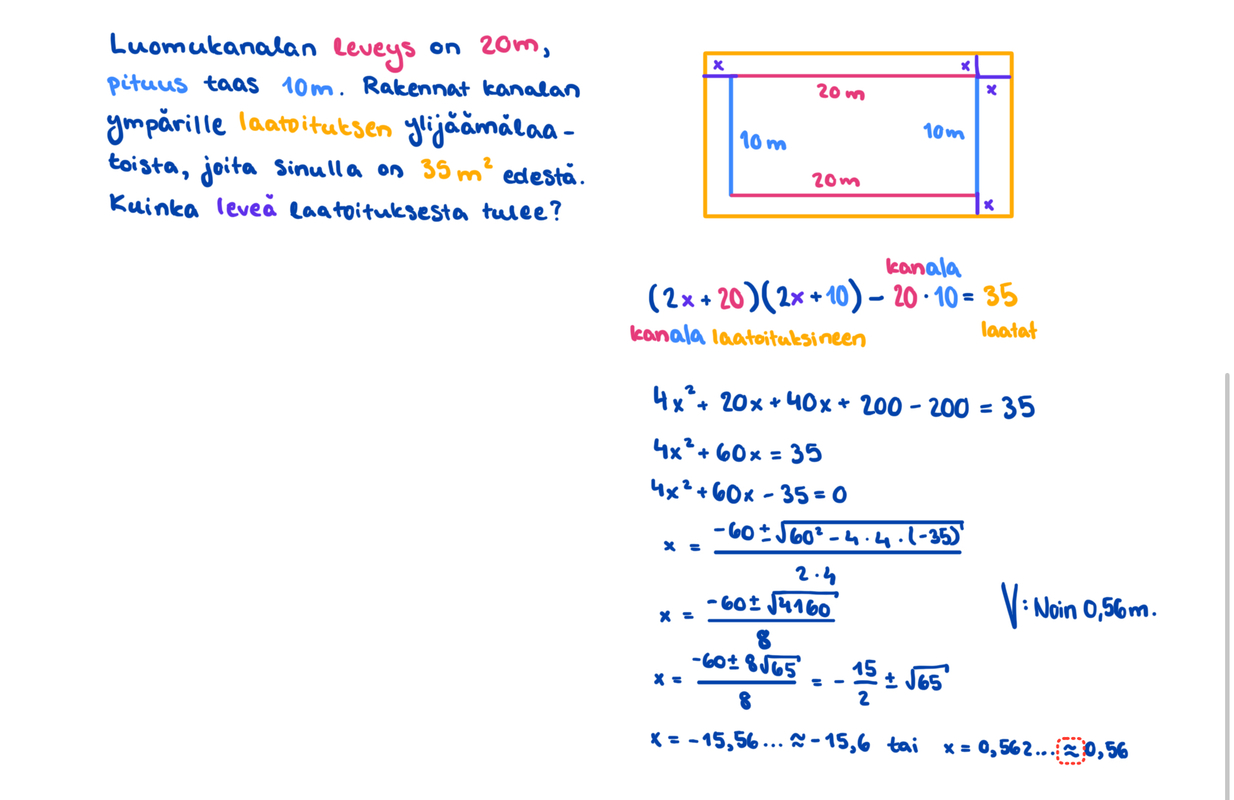 Luomukanalan leveys on 20m,
pituus taas 10m. Rakennat kanalan
ympärille laatoituksen ylijäämälaa-
toista, joita sinulla on 35 m² edestä.
Kuinka leveä laatoituksesta tulee?
x x
x
20 m
10 m 10 m
20 m
x
kanala
(2x + 20)(2x + 10) - 20 · 10 = 35
kanala laatoituksineen laatat
4x² + 20x + 40x + 200 - 200 = 35
4x² + 60x = 35
4x² + 60x - 35 = 0
x = (-60 ± √(60² - 4 · 4 · (-35))) / (2 · 4)
x = (-60 ± √4160) / 8
V: Noin 0,56m.
x = (-60 ± 8√65) / 8 = - 15/2 ± √65
x = -15,56... ≈ -15,6 tai x = 0,562... ≈ 0,56